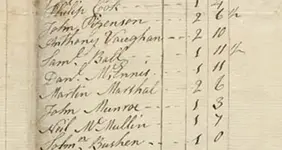 Philip Cook - - 1 7
John Pogenson - - 2 6½
Anthony Vaughan - - 2 10
Saml. Ball - - 1 11½
Danl. McInnes - - 1 11
Martin Marshal - - 2 6
John Munroe - - - 1 3
Neil Mc Mullin - - 1 7
John Bushen - - 1 0